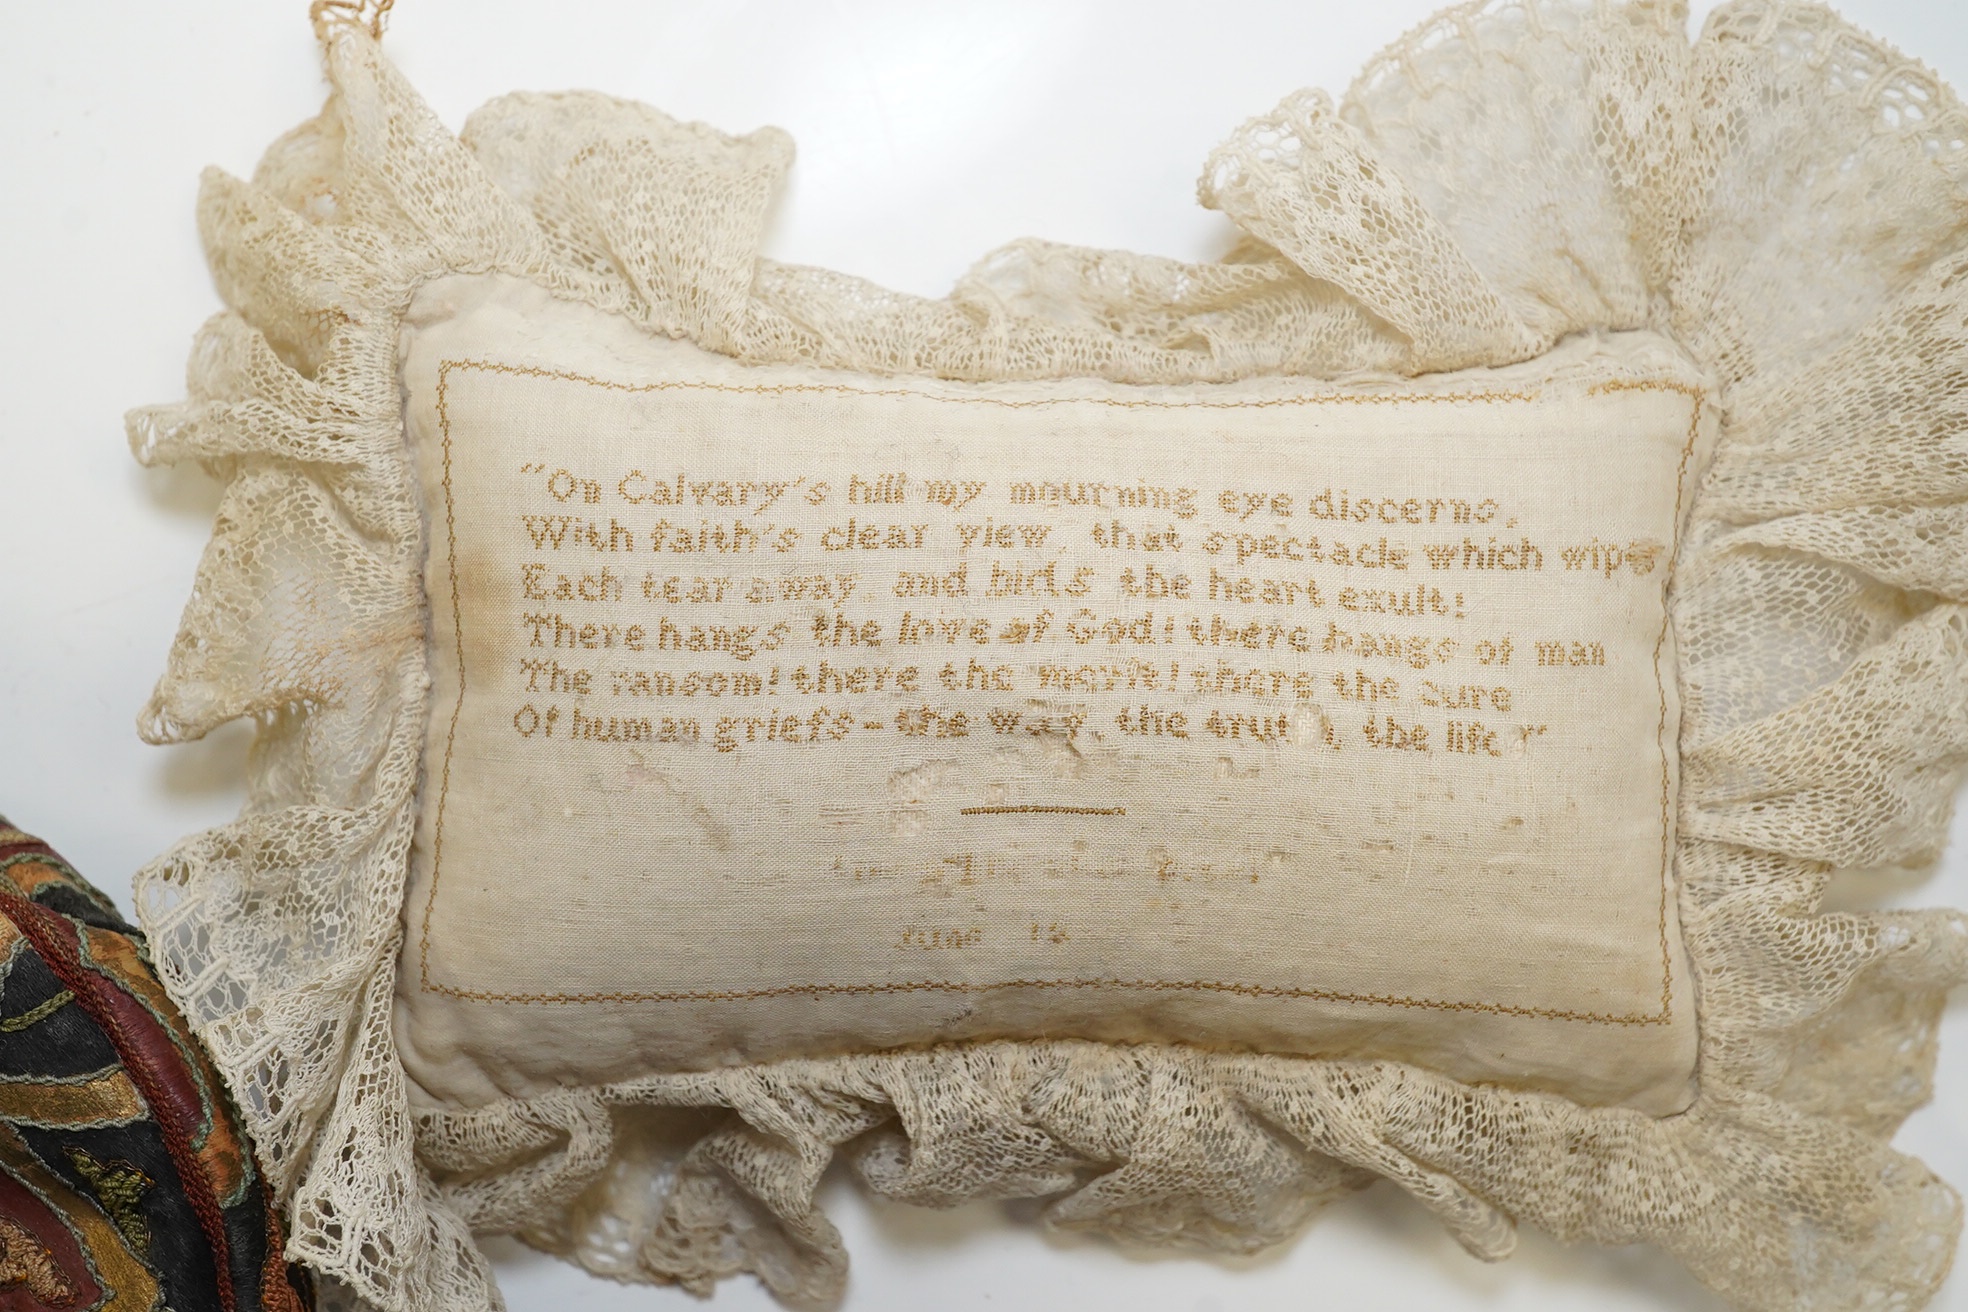 “On Calvary's hill my mourning eye discerns,
With faith's clear view, that spectacle which wipes
Each tear away, and bids the heart exult!
There hangs the love of God! there hangs of man
The ransom! there the merit! there the cure
Of human griefs – the way, the truth, the life”
June 18